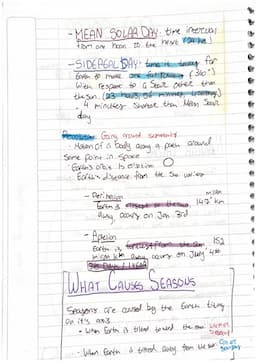 - MEAN SOLAR DAY: time interval
from one noon to the next (24 hr)
- SIDEREAL DAY: time it takes for
Earth to make one full rotation (360°)
with respect to a star other than
the sun. (23 hours, 56 minutes,
• 4 minutes shorter than Mean Solar
day
Going around something
- Motion of a body along a path around
some point in space
• Earth's orbit is
• Earth's distance from the sun varies
- Perihelion
Earth is closest to the sun
147 km
away, occurs on Jan 3rd
- Aphelion
Earth is farthest from the sun 152
away occurs on July 4th
365 Days / 1 YEAR
WHAT CAUSES SEASONS
Seasons are caused by the Earth tilting
on it's axis
- When Earth is tilted toward the sun
- When Earth is tilted away from the sun